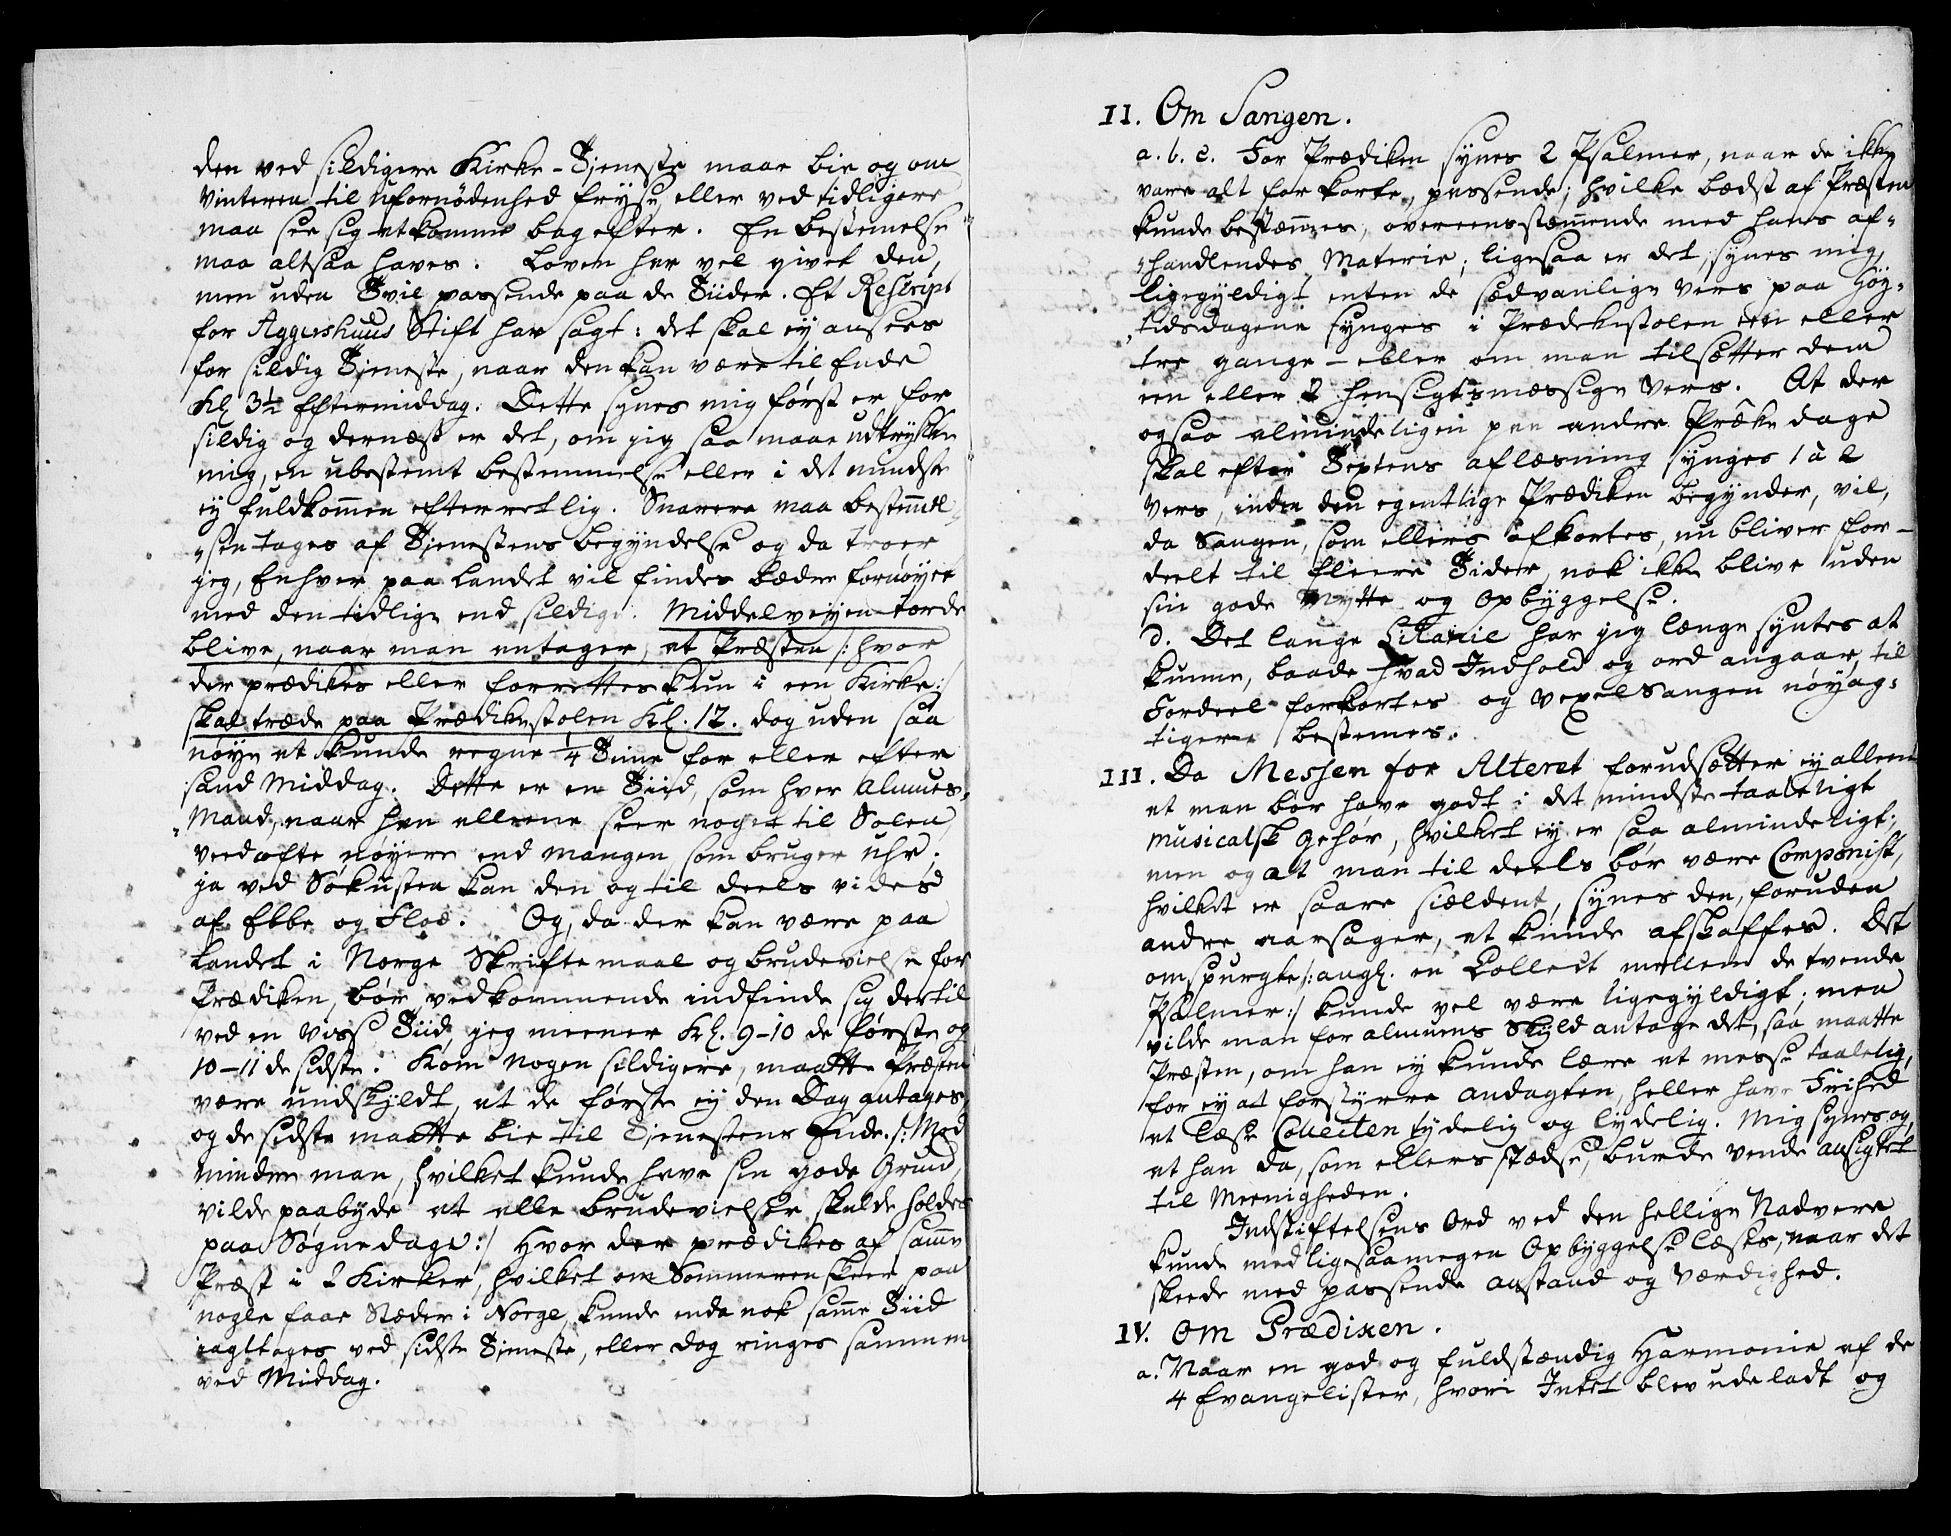 den ved sildigere Kirke-Tjeneste maae bie og om
Vinteren til ufornødenhed fryse eller ved tidligere
maa see sig at komme bagefter. En bestemelse
maa altsaa haves. Loven har vel givet den,
men uden Tvil passende paa de Tiider. Et Rescript
for Aggershuus Stift har sagt: det skal ey ansees
for sildig Tjeneste, naar den kan være til Ende
Kl 3½ Eftermiddag. Dette synes mig først er for
sildig og dernæst er det, om jeg saa maae udtrykke
mig, en ubestemt bestemmelse eller i det mindste
ey fuldkommen efterretlig. Snarere maa bestemmel-
sen tages af Tjenestens begyndelse og da troer
jeg, Enhver paa Landet vil findes bedre fornøyet
med den tidlige end sildige. Middelveyen torde
blive, naar man antager, at Præsten /: hvor
der prædikes eller forrettes kun i een Kirke :/
skal træde paa Prædikestolen Kl. 12. dog uden saa
nøye at kunde regne ¼ Time for eller efter
sand Middag. Dette er en Tiid, som hver Almues-
Mand, naar han allene seer noget til Solen
veed ofte nøyere end mangen som bruger Uhr.
ja ved Søkusten kan den og til deels vides
af Ebbe og Flod. Og, da der kan være paa
Landet i Norge Skriftemaal og brudevielse for
Prædiken, bør vedkommende indfinde sig dertil
ved en viss Tiid, jeg meener Kl. 9-10 de første og
10-11 de sidste. Kom nogen sildigere, maatte Præsten
være undskyldt, at de første ey den Dag antages
og de sidste maatte bie til Tjenestens Ende. /: Med
mindre man, hvilket kunde have sin gode Grund,
vilde paabyde at alle brudevielser skulde holdes
paa Søgnedage :/ Hvor der prædikes af samme
Præst i 2 Kirker, hvilket om Sommeren skeer paa
nogle faae Stæder i Norge, kunde enda nok samme Tiid
iagttages ved sidste Tjeneste, eller dog ringes sammen
ved Middag.
II. Om Sangen.
a. b. c. For Prædiken synes 2 Psalmer, naar de ikke
vare alt for korte, passende; hvilke bedst af Præsten
kunde bestemmes, overeensstemmende med hans af-
handlendes Materie; ligesaa er det, synes mig,
ligegyldigt enten de sædvanlige Vers paa Høy-
tidsdagene synges i Prædekestolen een eller
tre gange – eller om man tilsætter dem
een eller 2 hensigtsmæssige Vers. At der
ogsaa almindeligen paa andre Præke dage
skal efter Textens aflæsning synges 1 à 2
Vers, inden den egentlige Prædiken begynder, vil,
da Sangen, som ellers afkortes, nu bliver for-
deelt til fleere Tider, nok ikke blive uden
sin gode Nytte og Opbyggelse.
d. Det lange Litanie har jeg længe syntes at
kunne, baade hvad Indhold og ord angaar, til
Fordeel forkortes og Vexelsangen nøyag-
tigere bestemes.
III. Da Messen for Alteret forudsætter ey allene
at man bør have godt i det mindste taaleligt
musicalsk Gehør, hvilket ey er saa almindeligt;
men og at man til deels bør være Componist,
hvilket er saare sieldent, synes den, foruden
andre aarsager, at kunde afskaffes. Det
omspurgte /: angl. en Collect mellem de tvende
Psalmer :/ kunde vel være ligegyldigt; men
vilde man for almuens Skyld antage det, saa maatte
Præsten, om han ey kunde lære at messe taalelig,
for ey at forstyrre andagten, heller have Frihed
at læse Collecten tydelig og lydelig. Mig synes og,
at han da, som ellers stedse, burde vende ansigtet
til Meenigheden.
Indstiftelsens Ord ved den hellige Nadvere
kunde med ligesaamegen Opbyggelse læses, naar det
skeede med passende anstand og Værdighed.
IV. Om Prædiken.
a. Naar en god og fuldstændig Harmonie af de
4 Evangelister, hvori Intet blev udeladt og